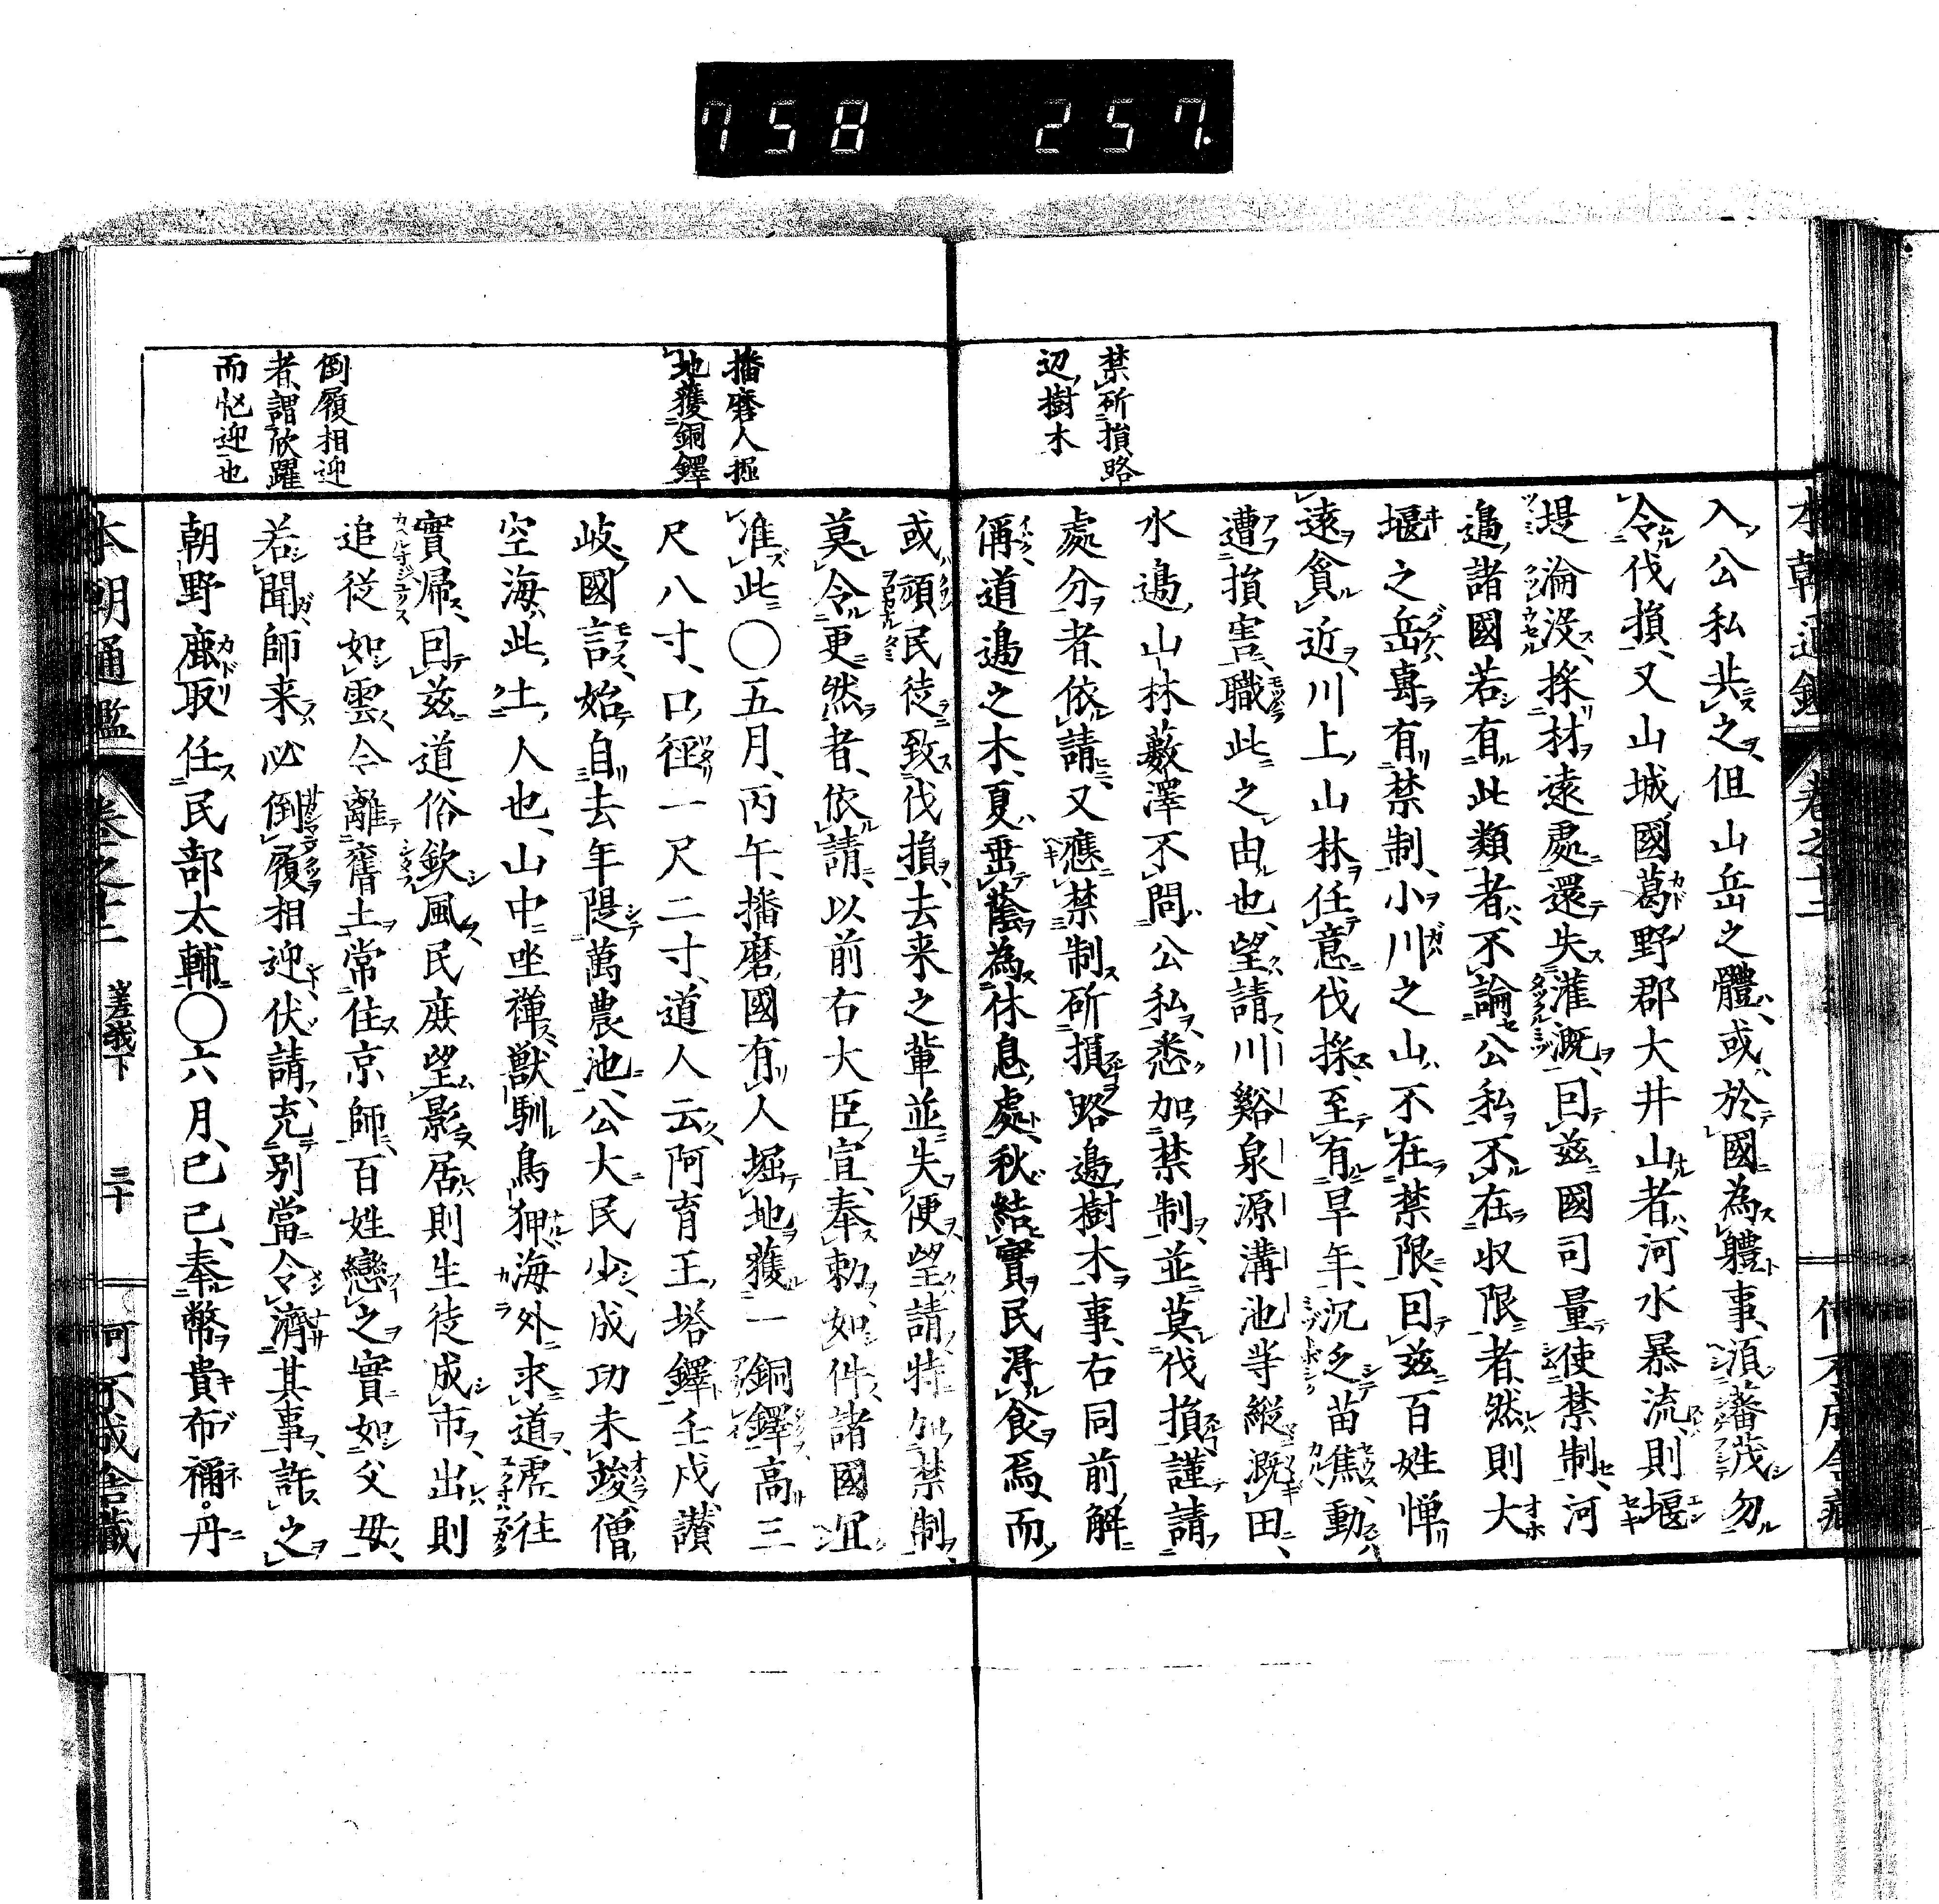 758 257.
禁所損路
辺樹木
入公私共之但山岳之體或於國為軆事湏蕃茂勿
令伐損又山城國葛野郡大井山者河水暴流則堰
堤淪没採材遠處還失灌溉囙兹國司量使禁制河
邉諸國若有此類者不論公私不在収限者然則大
堰之岳専有禁制小川之山不在禁限囙兹百姓憚
遠貪近川上山林任意伐採至有旱年沉乏苗焦動
遭損害職此之由也望請川谿泉源溝池等縦溉田
水邉山林藪澤不問公私悉加禁制並莫伐損謹請
處分者依請又應禁制所損路邉樹木事右同前解
偁道邉之木夏垂蔭為休息處秋結實民得食焉而
播磨人掘
地獲銅鐸
倒履相迎
者謂欣躍
而忙迎也
或頑民徒致伐損去来之輩並失便望請特加禁制
莫令更然者依請以前右大臣宣奉勅如件諸國冝
准此〇五月丙午播磨國有人堀地獲一銅鐸高三
尺八寸口徑一尺二寸道人云阿育王塔鐸壬戌讃
岐國言始自去年隄萬農池公大民少成功未竣僧
空海此土人也山中坐禅獣馴鳥狎海外求道虚往
實帰囙兹道俗欽風民庶望影居則生徒成市出則
追従如雲今離奮土常住京師百姓戀之實如父母
若聞師来必倒履相迎伏請充別當令濟其事許之
朝野鹿取任民部太輔〇六月己己奉幣貴布禰丹
本朝通鑑 卷之十二 嵯峨下 三十